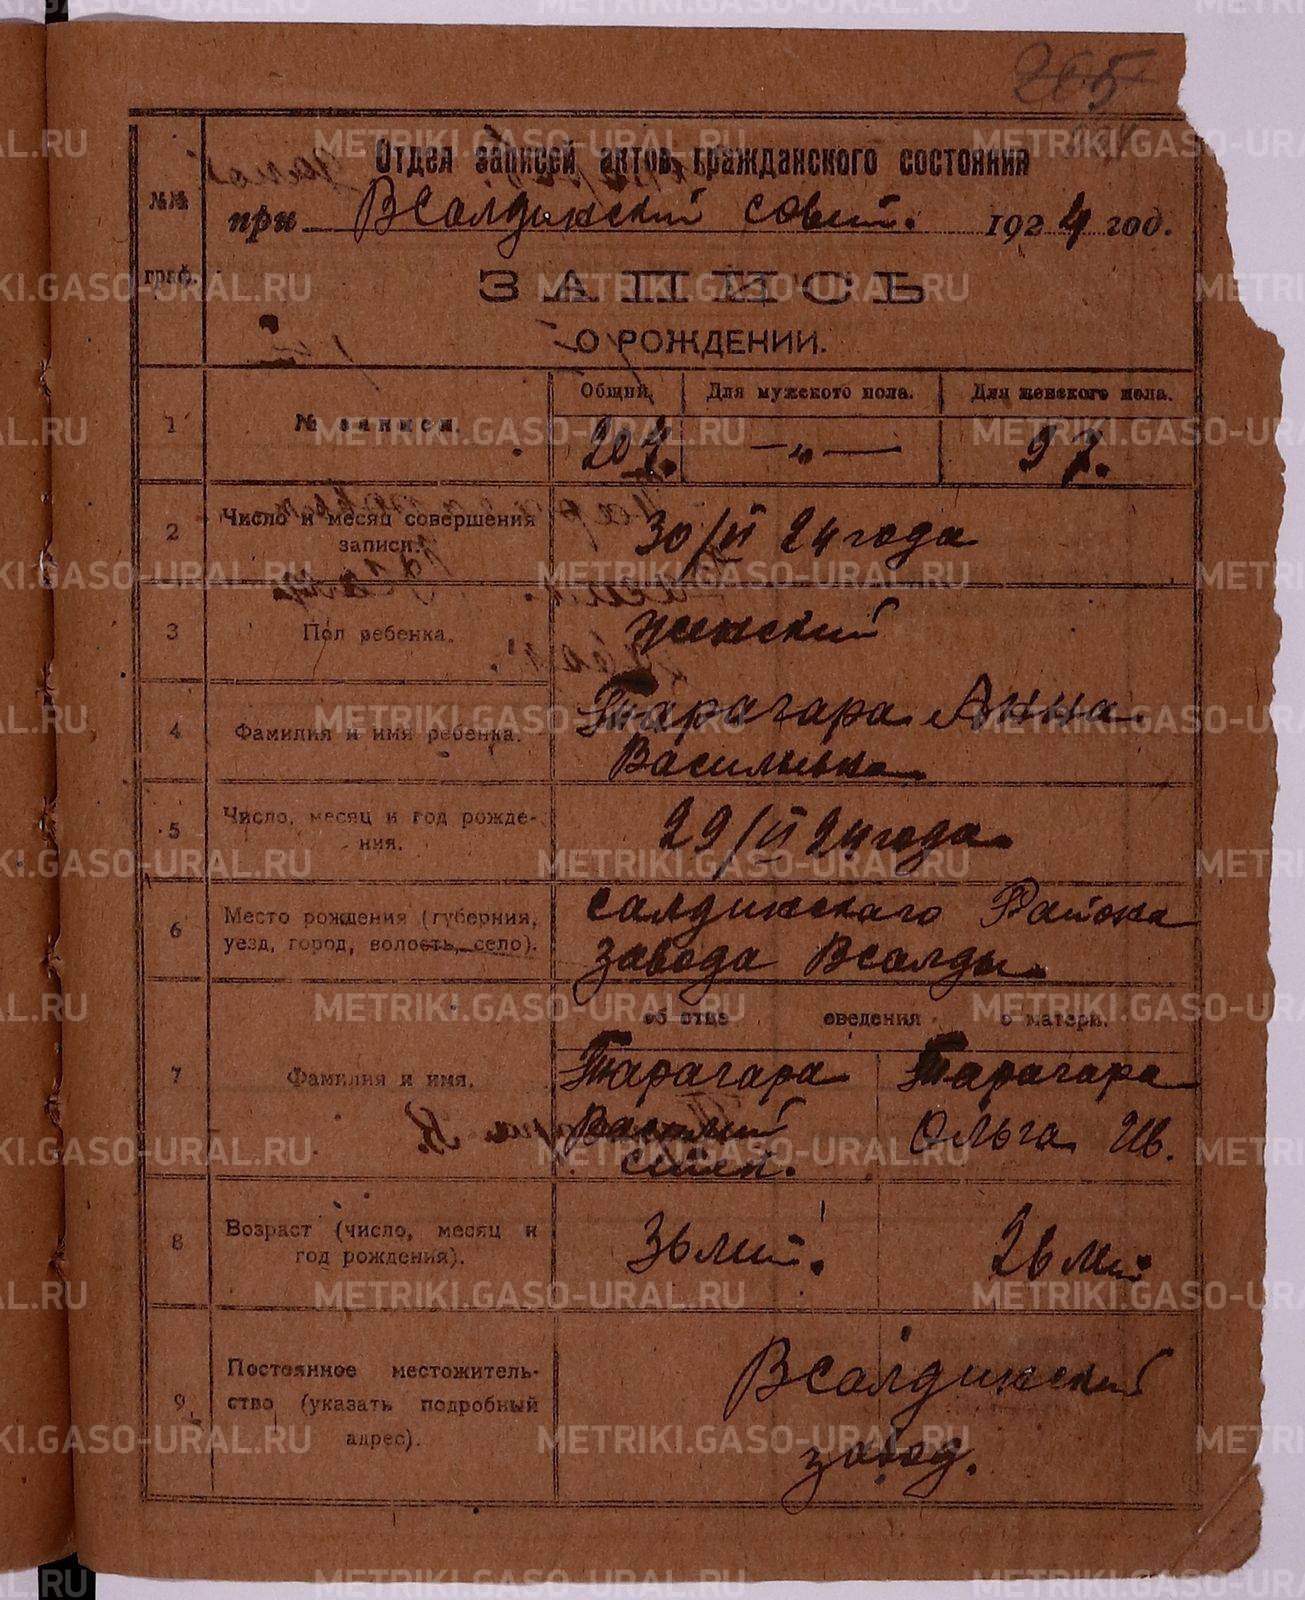 265
Отдел записей актов гражданского состояния
№№ граф.
при ВСалдинский совет. 1924 год.
ЗАПИСЬ
О РОЖДЕНИИ.
1 № записи. Общий. Для мужского пола. Для женского пола.
204. —„— 97.
2 Число и месяц совершения записи. 30/VI 24 года
3 Пол ребенка. женский
4 Фамилия и имя ребенка. Тарагара Анна
Васильевна
5 Число, месяц и год рожде-
ния. 29/VI 24 года
6 Место рождения (губерния, Салдинскаго Района
уезд, город, волость, село). завода ВСалды
об отце сведения о матери.
7 Фамилия и имя. Тарагара Тарагара
Василий Ольга Ив.
степ.
8 Возраст (число, месяц и
год рождения). 36 лет. 26 лет
9 Постоянное местожитель-
ство (указать подробный
адрес). ВСалдинский
завод.
METRIKI.GASO-URAL.RU